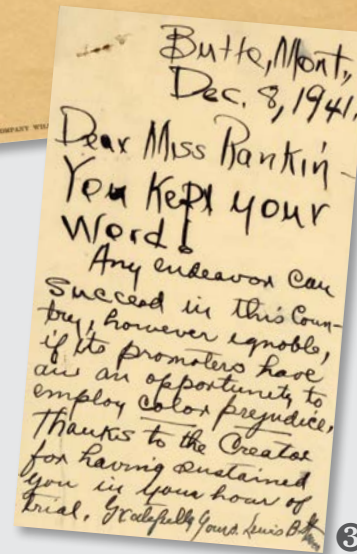 COMPANY
Butte, Mont.,
Dec. 8, 1941.
Dear Miss Rankin-
You Kept your
Word!
Any endeavor can
succeed in this Coun-
try, however ignoble,
if its promoters have
an opportunity to
employ color prejudice.
Thanks to the Creator
for having sustained
you in your hour of
trial. Gratefully yours. Lewis
3